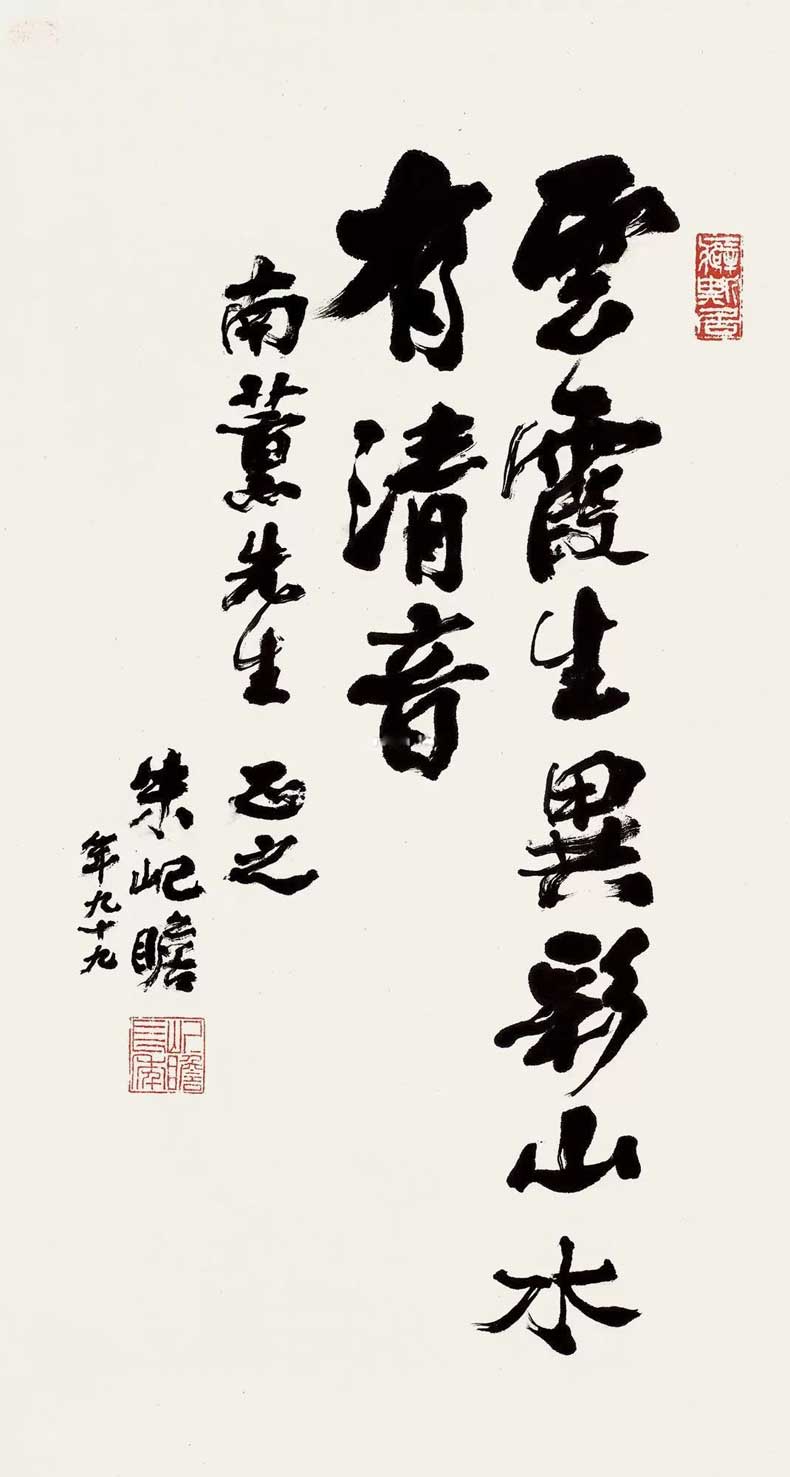 癖斯居
雲霞生異彩山水
有清音
南薰先生 正之
朱屺瞻
年九十九
屺瞻長年